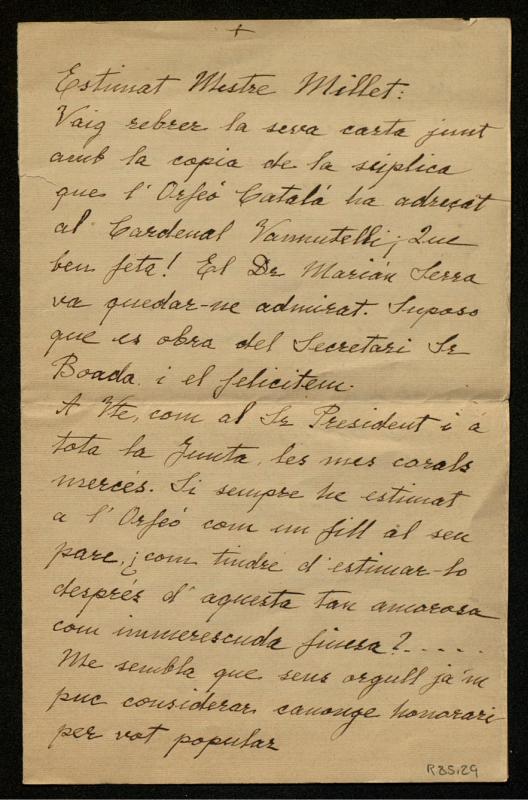 +
Estimat Mestre Millet:
Vaig rebrer la seva carta junt
amb la copia de la súplica
que l'Orfeó Catalá ha adreçat
al Cardenal Vannutelli; Que
ben feta! El Dr Marián Serra
va quedar-ne admirat. Suposo
que es obra del Secretari Sr
Boada i el felicitem.
A Vte, com al Sr President i a
tota la Junta, les mes corals
mercés. Si sempre he estimat
a l'Orfeó com un fill al seu
pare, ¿com tindré d'estimar-lo
després d'aquesta tan amorosa
com immerescuda finesa?.....
Me sembla que sens orgull ja'm
puc considerar canonge honorari
per vot popular
R.35.29